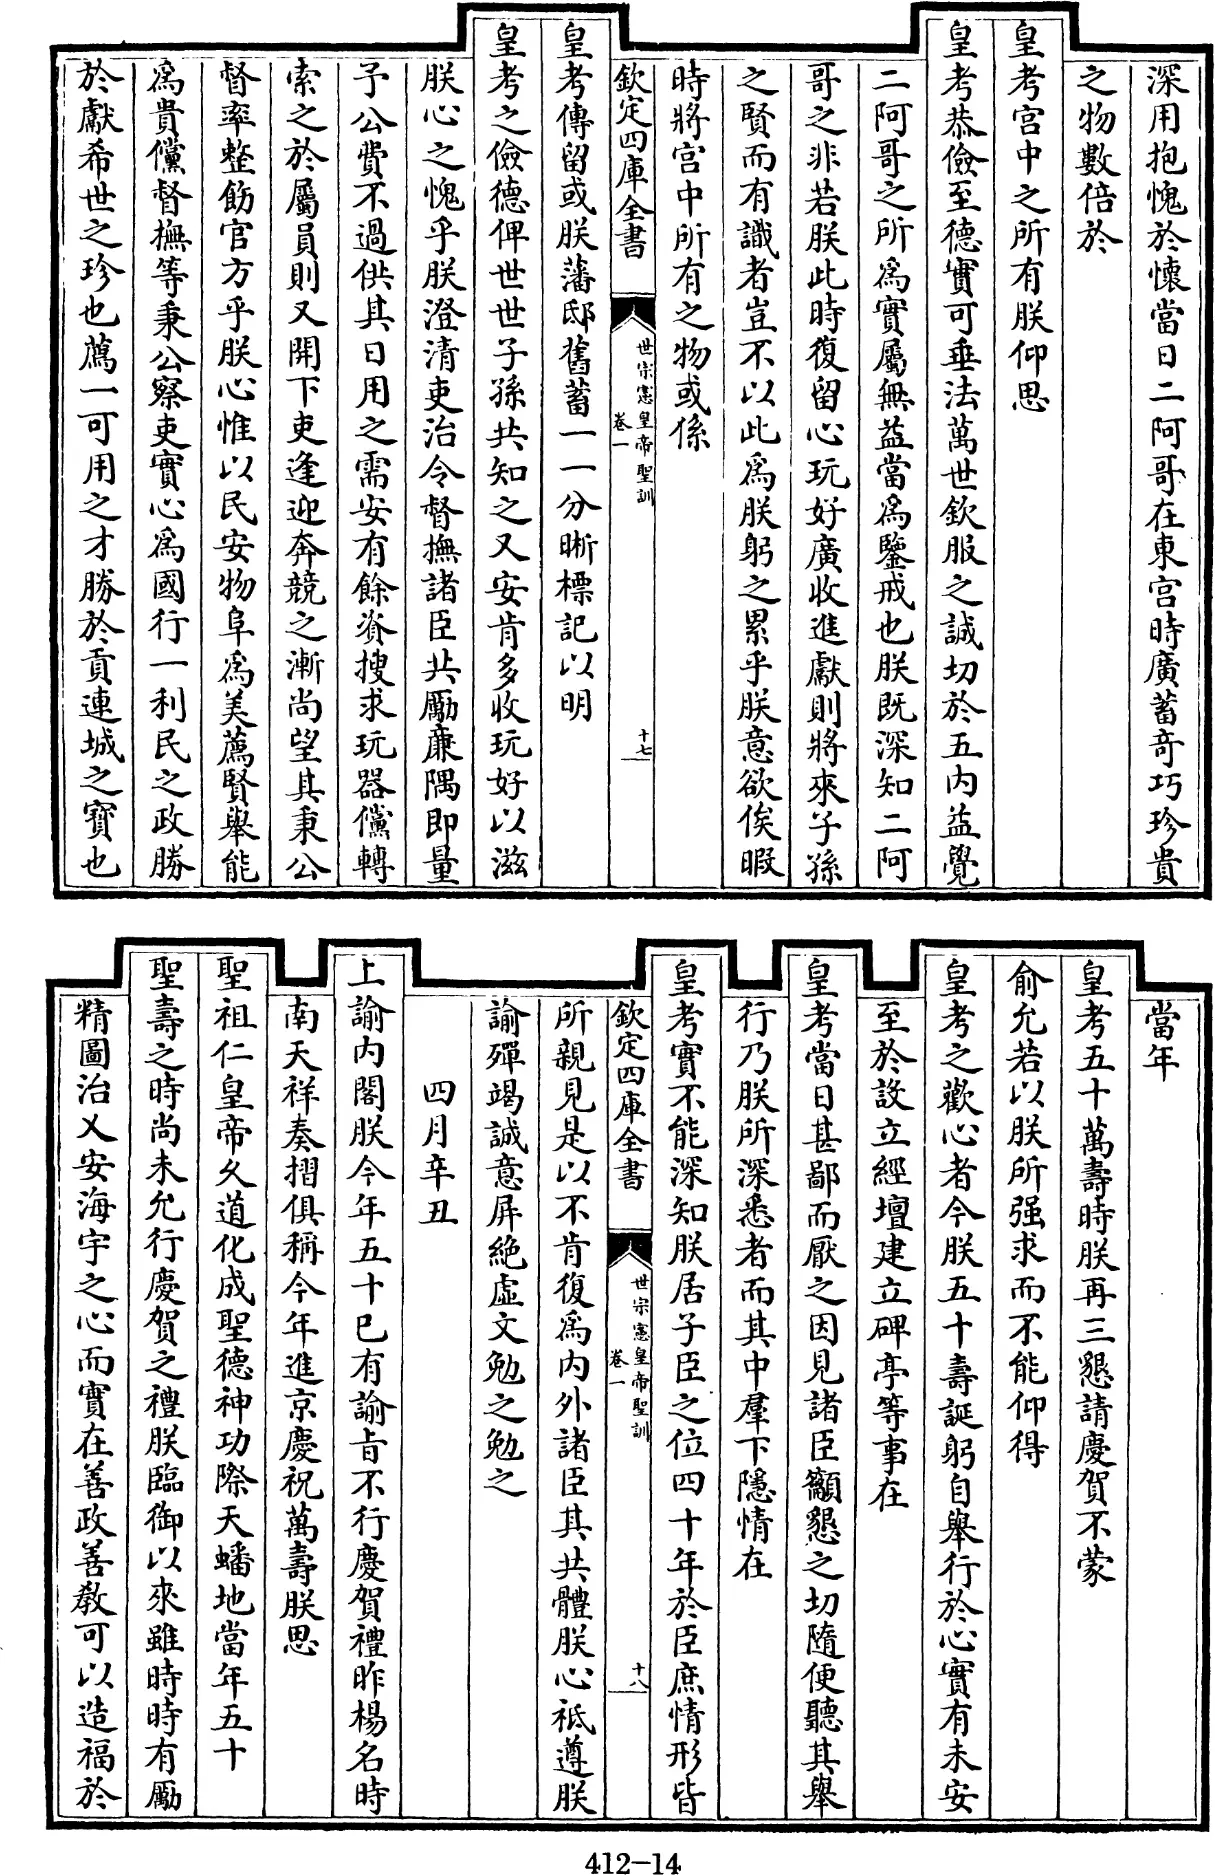 深用抱愧於懷當日二阿哥在東宮時廣蓄奇巧珍貴
之物數倍於
皇考宮中之所有朕仰思
皇考恭儉至德實可垂法萬世欽服之誠切於五内益覺
二阿哥之所爲實屬無益當爲鑒戒也朕既深知二阿
哥之非若朕此時復留心玩好廣收進獻則將來子孫
之賢而有識者豈不以此爲朕躬之累乎朕意欲俟暇
時將宮中所有之物或係
欽定四庫全書
世宗憲皇帝聖訓
卷一
十七
皇考傳留或朕藩邸舊蓄一一分晰標記以明
皇考之儉德俾世世子孫共知之又安肯多收玩好以滋
朕心之愧乎朕澄清吏治令督撫諸臣共勵廉隅即量
予公費不過供其日用之需安有餘資搜求玩器儻轉
索之於屬員則又開下吏逢迎奔競之漸尚望其秉公
督率整飭官方乎朕心惟以民安物阜爲美薦賢舉能
爲貴儻督撫等秉公察吏實心爲國行一利民之政勝
於獻希世之珍也薦一可用之才勝於貢連城之寶也
當年
皇考五十萬壽時朕再三懇請慶賀不蒙
俞允若以朕所强求而不能仰得
皇考之歡心者今朕五十壽誕躬自舉行於心實有未安
至於設立經壇建立碑亭等事在
皇考當日甚鄙而厭之因見諸臣籲懇之切隨便聽其舉
行乃朕所深悉者而其中羣下隱情在
皇考實不能深知朕居子臣之位四十年於臣庶情形皆
欽定四庫全書
世宗憲皇帝聖訓
卷一
十八
所親見是以不肯復爲内外諸臣其共體朕心祇遵朕
諭殫竭誠意屏絶虛文勉之勉之
四月辛丑
上諭内閣朕今年五十已有諭旨不行慶賀禮昨楊名時
南天祥奏摺俱稱今年進京慶祝萬壽朕思
聖祖仁皇帝久道化成聖德神功際天蟠地當年五十
聖壽之時尚未允行慶賀之禮朕臨御以來雖時時有勵
精圖治乂安海宇之心而實在善政善教可以造福於
412-14